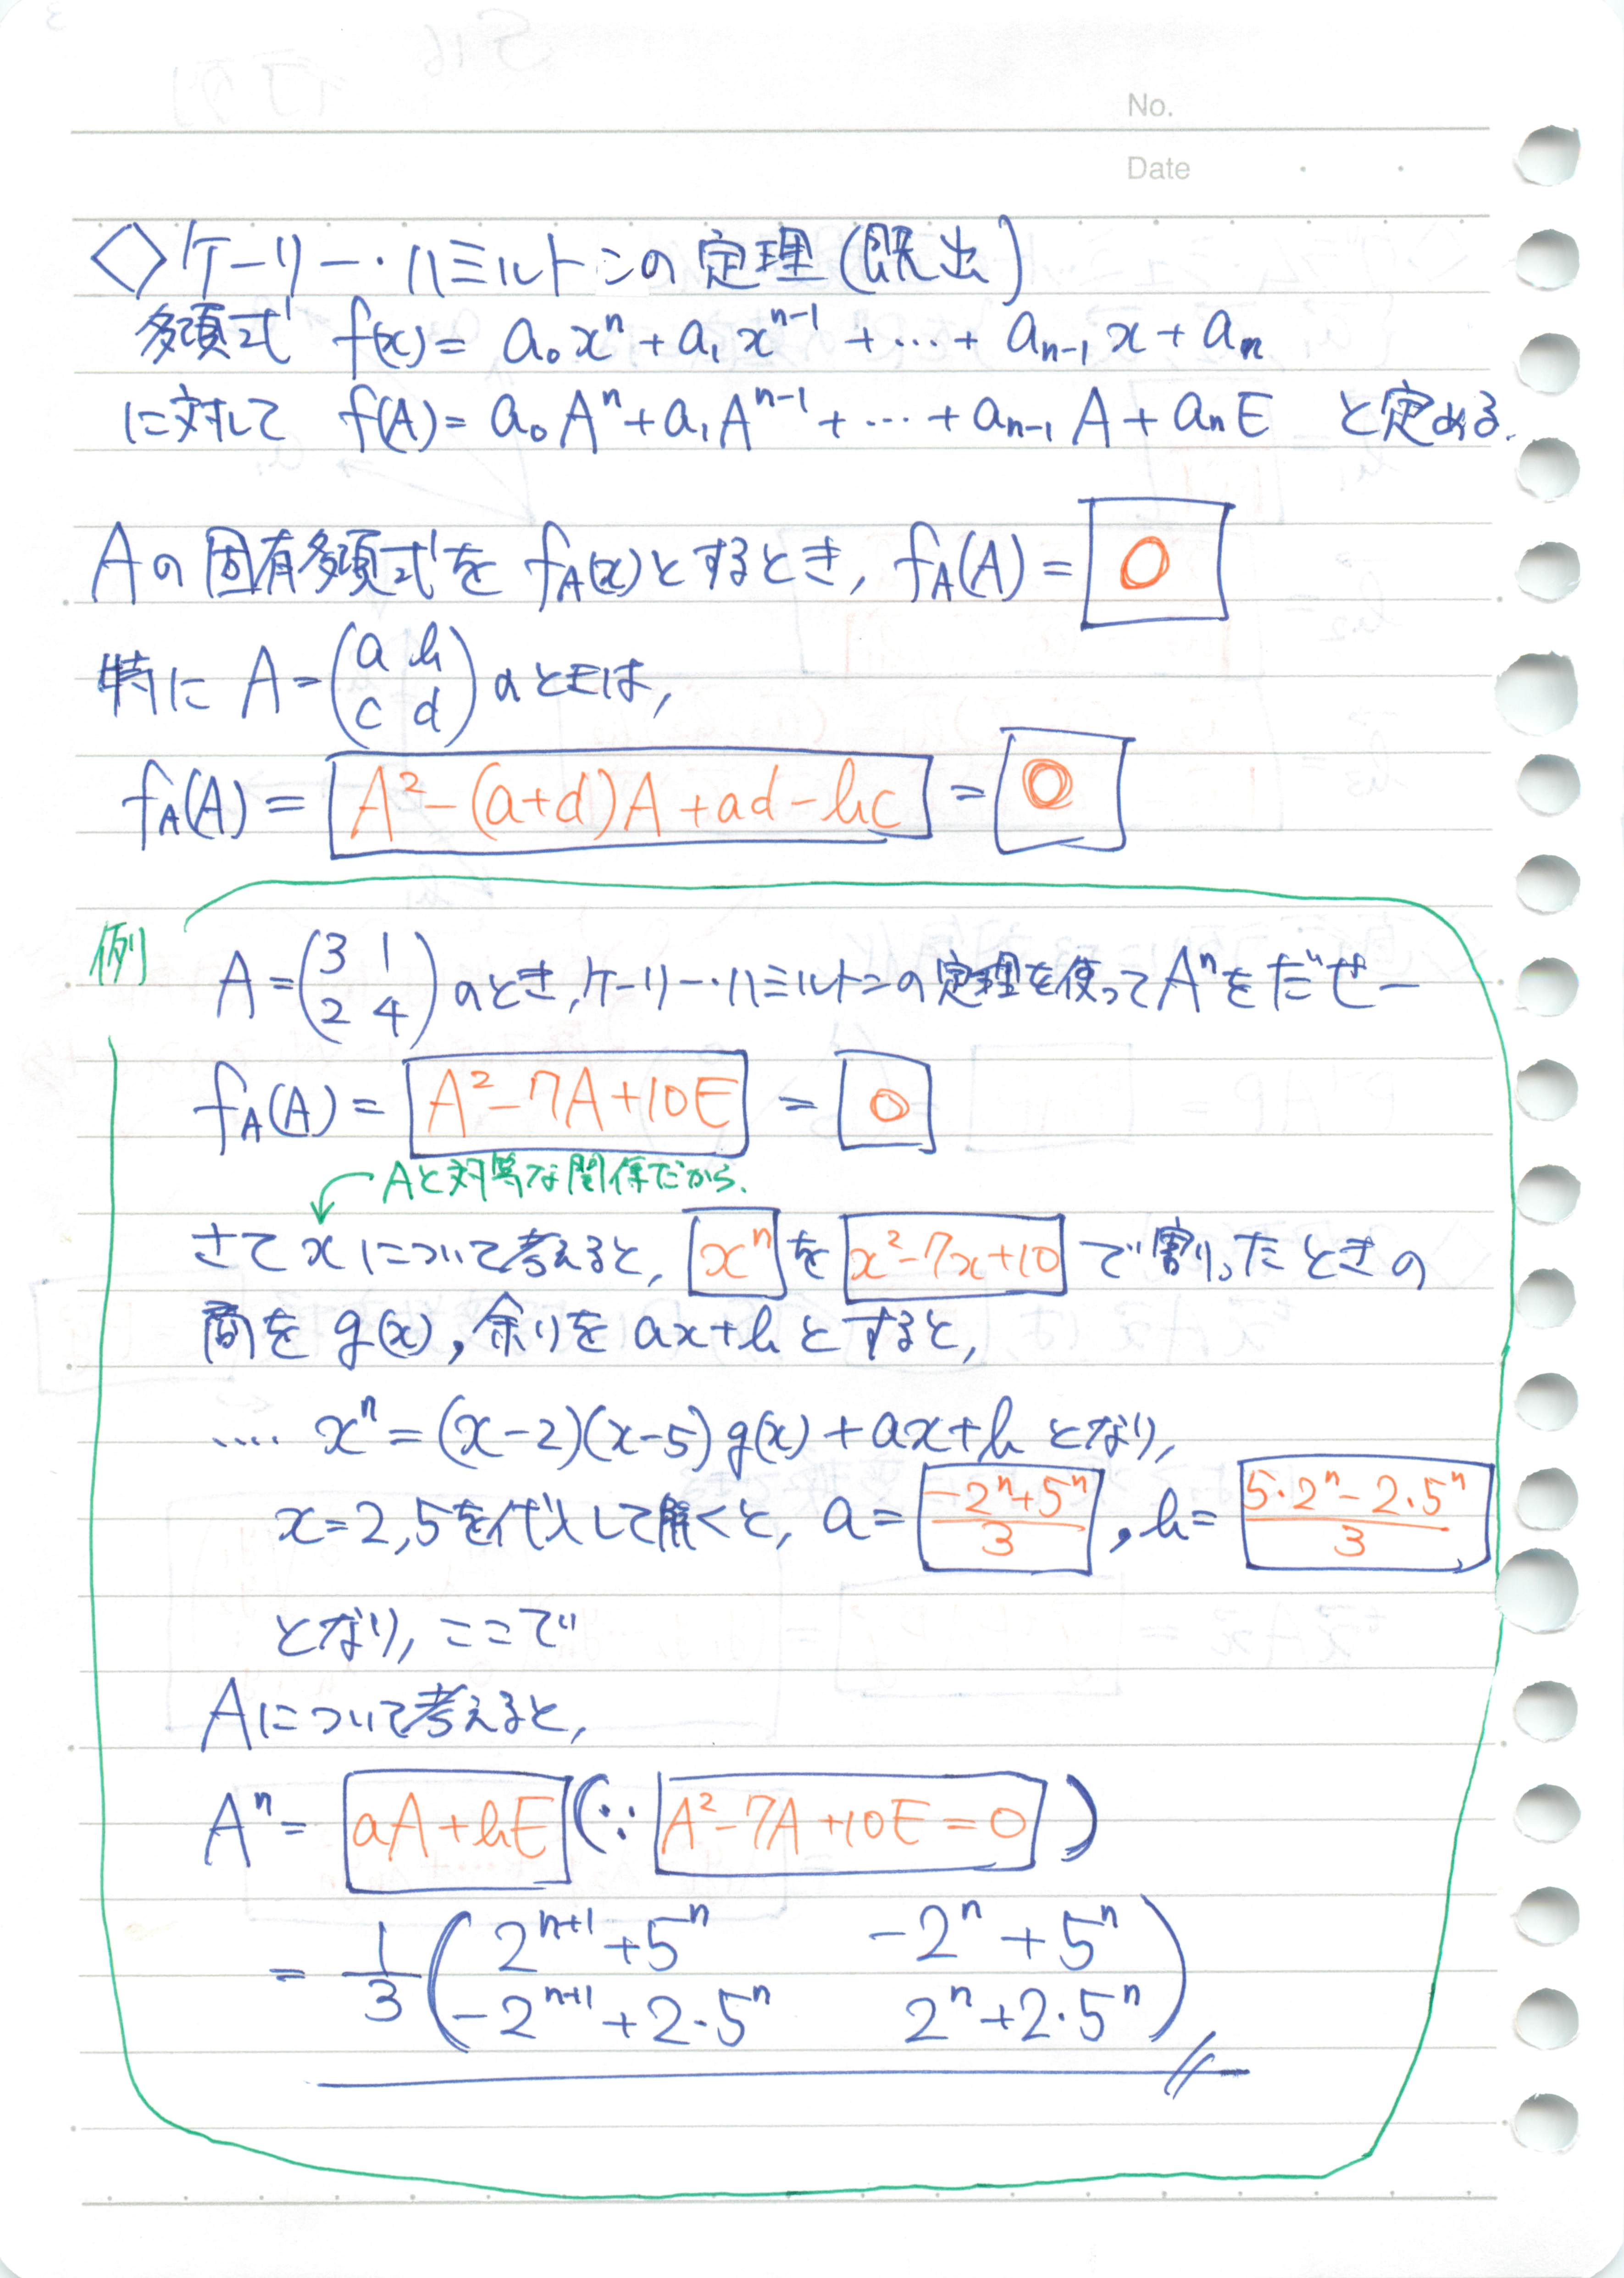 No.
Date
◇ケーリー・ハミルトンの定理(既出)
多項式 f(x) = a₀xⁿ + a₁xⁿ⁻¹ + … + aₙ₋₁x + aₙ
に対して f(A) = a₀Aⁿ + a₁Aⁿ⁻¹ + … + aₙ₋₁A + aₙE と定める.
Aの固有多項式を f_A(x)とするとき, f_A(A) = O
特に A = (a b
c d) のときは,
f_A(A) = A² - (a+d)A + ad - bc = O
例 A = (3 1
2 4) のとき,ケーリー・ハミルトンの定理を使ってAⁿをだせー
f_A(A) = A² - 7A + 10E = O
Aと対等な関係だから.
さて x について考えると, xⁿ を x² - 7x + 10 で割ったときの
商を g(x), 余りを ax+b とすると,
…. xⁿ = (x-2)(x-5)g(x) + ax + b となり,
x = 2,5を代入して解くと, a = (-2ⁿ+5ⁿ)/3 , b = (5・2ⁿ - 2・5ⁿ)/3
となり, ここで
Aについて考えると,
Aⁿ = aA + bE (∵ A² - 7A + 10E = O)
= 1/3 (2ⁿ⁺¹ + 5ⁿ -2ⁿ + 5ⁿ
-2ⁿ⁺¹ + 2・5ⁿ 2ⁿ + 2・5ⁿ)